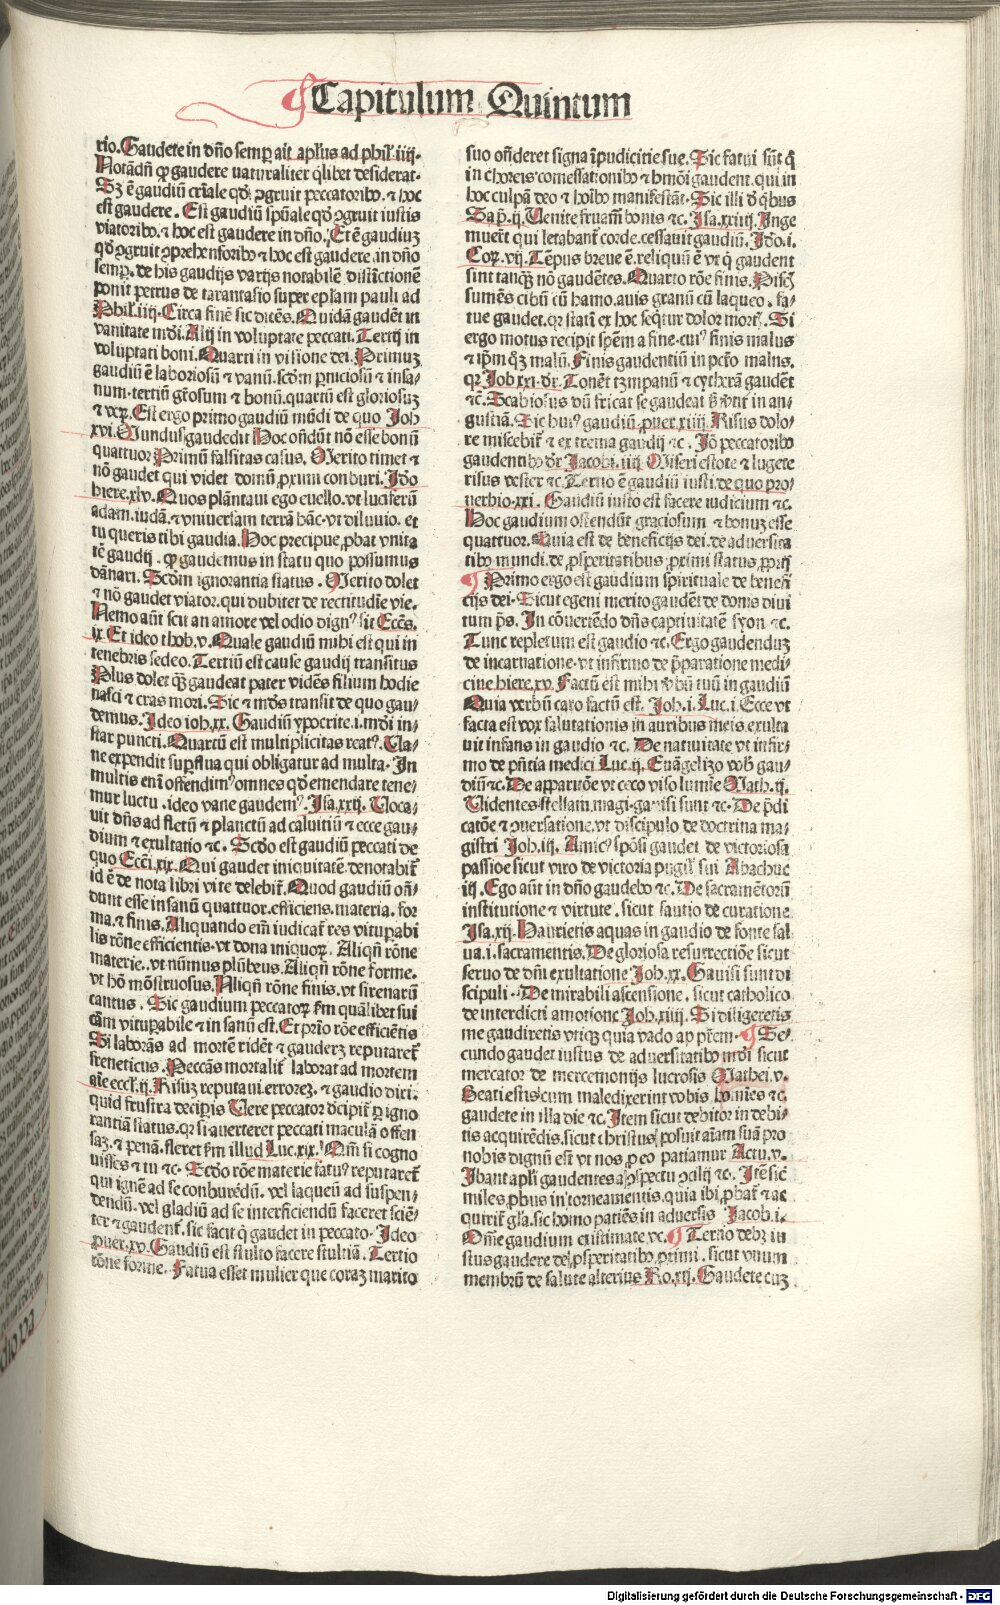 Capitulum Quintum
rio. Gaudete in dño semꝑ ait apłus ad phil̃. iiij.
Notãdñ qɔ gaudere naturaliter qͥlibet desiderat.
Sʒ ẽ gaudiũ crĩale qd̓ ꝯgruit peccatoribꝰ. ⁊ hoc
est gaudere. Est gaudiũ spũale qd̓ ꝯgruit iustis
viatoribꝰ. ⁊ hoc est gaudere in dño. Et ẽ gaudiuʒ
qd̓ ꝯgruit ꝯprehensoribꝰ ⁊ hoc est gaudere. in dño
semꝑ. de his gaudijs varijs notabilẽ distĩctionẽ
ponit petrus de tarantasio super ep̃lam pauli ad
Phil̃. iiij. Circa finẽ sic dicẽs. Quidã gaudẽt in
vanitate mũdi. Alij in voluptate peccati. Tertij in
voluptati boni. Quarti in visione dei. Primuʒ
gaudiũ ẽ laboriosũ ⁊ vanũ. scd̓m ꝑniciosũ ⁊ insa-
num. tertiũ gr̃osum ⁊ bonũ. quartũ est gloriosuʒ
⁊ veꝝ. Est ergo primo gaudiũ mũdi de quo Joh
xvi. Mundus gaudebit Hoc oñdũt nõ esse bonũ
quattuor Primũ falsitas casus. Merito timet ⁊
nõ gaudet qui videt domũ ꝓrimi conburi. Jdo
hiere. xlv. Quos plãntaui ego euello. vt luciferũ
adam. iudã. ⁊ vniuersam terrã hãc. vt diluuio. et
tu queris tibi gaudia. Hoc precipue ꝓbat vnita
tẽ gaudij. qɔ gaudemus in statu quo possumus
dãnari. Scd̓m ignorantia status. Merito dolet
⁊ nõ gaudet viator. qui dubitet de rectitudie vie.
Nemo aũt scit an amore vel odio dignꝰ sit Eccẽs.
ix. Et ideo thob. v. Quale gaudiũ mihi est qui in
tenebris sedeo. Tertiũ est cause gaudij trãnsitus
Plus dolet q̃ʒ gaudeat pater vidẽs filium hodie
nasci ⁊ cras mori. Sic ⁊ mũdꝰ transit de quo gau-
demus. Jdeo ioh. xx. Gaudiũ ypocrite. i. mũdi in-
star puncti. Quartũ est multiplicitas reatꝰ. Va-
ne expendit suꝑflua qui obligatur ad multa. In
multis enĩ offendimꝰ omnes qd̓ emendare tene-
mur luctu. ideo vane gaudemꝰ. Jsa. xxij. Voca-
uit dñs ad fletũ ⁊ planctũ ad caluitiũ ⁊ ecce gau-
dium ⁊ exultatio ⁊c. Scd̓o est gaudiũ peccati de
quo Eccĩ. xix. Qui gaudet iniquitatẽ denotabit̃
id ẽ de nota libri vite delebit̃. Quod gaudiũ oñ-
dunt esse insanũ quattuor. efficiens. materia. for
ma. ⁊ finis. Aliquando em̃ iudicat̃ res vituꝑabi
lis rõne efficientis. vt dona iniquoꝝ. Aliqñ rõne
materie. vt nũmus plũbeus. Aliqñ rõne forme.
vt hõ mõstruosus. Aliqñ rõne finis. vt sirenarũ
cantus. Sic gaudium peccatoꝝ s̃m quãlibet sui
cãm vituꝑabile ⁊ in sanũ est. Et prĩo rõe efficiẽtis
Si laborãs ad mortẽ ridet̃ ⁊ gauderʒ reputaret̃
freneticus. Peccãs mortalit̃ laborat ad mortem
aĩe eccl̃. ij. Risuʒ reputaui errorez. ⁊ gaudio dixi.
quid frustra deciꝑis Vere peccator decipit̃ ꝑ igno
rantiã status. qꝛ si auerteret peccati maculã offen
saʒ. ⁊ penã. fleret s̃m illud Luc. xix. Qm̃ si cogno
uisses ⁊ tu ⁊c. Scd̓o rõne materie fatuꝰ reputaret̃
qui ignẽ ad se conburẽdũ. vel laqueũ ad suspen-
dendũ. vel gladiũ ad se interficiendũ faceret sciẽ-
ter ⁊ gaudent̃. sic facit q̃ gaudet in peccato. Jdeo
ꝓuer. xv. Gaudiũ est stulto facere stultitiã. Tertio
rõne forme. Fatua esset mulier que coraʒ marito
suo oñderet signa ĩpudicitie sue. Sic fatui sũt q̃
in choreis comessationibꝰ ⁊ hmõi gaudent. qui in
hoc culpã deo ⁊ hoĩbꝰ manifestãt. Sic illi d̓ qͥbus
Sap̃. ij. Venite fruam̃ bonis ⁊c. Jsa. xxiiij. Jnge
muer̃t qui letabant̃ corde. cessauit gaudiũ. Jdo. i.
Coꝝ. vij. Tẽpus breue ẽ. reliquũ ẽ vt q̃ gaudent
sint tanqʒ nõ gaudẽtes. Quarto rõe finis. Piscʒ
sumẽs cibũ cũ hamo. auis granũ cũ laqueo. fa-
tue gaudet. qꝛ statĩ ex hoc seqͥtur dolor mortꝭ. Si
ergo motus recipit spẽm a fine. cuiꝰ finis malus
⁊ ip̃m qͦʒ malũ. Finis gaudentiũ in pctõ malus.
qꝛ Job xxi. dr̃. Tenẽt tympanũ ⁊ cytharã gaudẽt
⁊c. Scabiosus dũ fricat se gaudeat ꝟtit̃ in an-
gustiã. Sic huiꝰ gaudiũ. ꝓuer. xiiij. Risus dolo-
re miscebit̃ ⁊ extrema gaudij ⁊c. Jõ peccatoribꝰ
gaudentibꝰ dr̃ Jacobi. iiij Miseri estote ⁊ lugete
risus vester ⁊c. Tertio ẽ gaudiũ iusti. de quo pro-
uerbio. xxi. Gaudiũ iusto est facere iudicium ⁊c.
Hoc gaudium ostendũt graciosum ⁊ bonuʒ esse
quattuor. Quia est de beneficijs dei. de aduersita
tibꝰ mundi. de ꝓsperitatibus ꝓrimi status ꝓprij
Primo ergo est gaudium spirituale de benefi
cijs dei. Sicut egeni merito gaudẽt de donis diui
tum p̃s. Jn cõuertẽdo dñs captiuitatẽ syon ⁊c.
Tunc repletum est gaudio ⁊c. Ergo gaudenduʒ
de incarnatione. vt infirmo de p̃paratione medi-
cine hiere. xv. Factũ est mihi ꝟbũ tuũ in gaudiũ
Quia verbũ caro factũ est. Joh. i. Luc. i. Ecce vt
facta est vox salutationis in auribus meis. exulta
uit infans in gaudio ⁊c. De natiuitate vt infir-
mo de p̃ñtia medici Luc. ij. Euãgelizo vob̃ gau-
diũ ⁊c. De apparitõe vt ceco viso lumĩe Math. ij.
Videntes stellam. magi. gauisi sunt ⁊c. De p̃di
catõe ⁊ ꝯuersatione. vt discipulo de doctrina ma-
gistri Joh. iij. Amicꝰ spõsi gaudet de victoriosa
passiõe sicut viro de victoria pugil̃ sui Abachuc
iij. Ego aũt in dño gaudebo ⁊c. De sacramẽtorũ
institutione ⁊ virtute. sicut sautio de curatione
Jsa. xij. Haurietis aquas in gaudio de fonte sal
ua. i. sacramentis. De gloriosa resurrectiõe sicut
seruo de dñi exultatione Joh. xx. Gauisi sunt di
scipuli. De mirabili ascensione. sicut catholico
de interdicti amotione Joh. xiiij. Si diligeretis
me gaudiretis vtiqʒ quia vado ap pr̃em. Se-
cundo gaudet iustus de aduersitatibꝰ mũdi sicut
mercator de mercemonijs lucrosis Mathei. v.
Beati estis cum maledixerint vobis homĩes ⁊c
gaudete in illa die ⁊c. Jtem sicut debitor in debi-
tis acquirẽdis. sicut christus posuit aĩam suã pro
nobis dignũ est vt nos ꝓ eo patiamur Actu. v.
Jbant apl̃i gaudentes a ꝯspectu ꝯcilij ⁊c. Jtẽ sic̃
miles ꝓbus in torneamentis. quia ibi ꝓbat̃ ⁊ ac
quirit̃ gl̃a. sic homo patiẽs in aduersis Jacob. i.
Om̃e gaudium existimate ⁊c. Tertio debʒ iu
stus gaudere de ꝓsperitatibꝰ ꝓrimi. sicut vnum
membrũ de salute alterius Ro. xij. Gaudete cuʒ
Digitalisierung gefördert durch die Deutsche Forschungsgemeinschaft - DFG